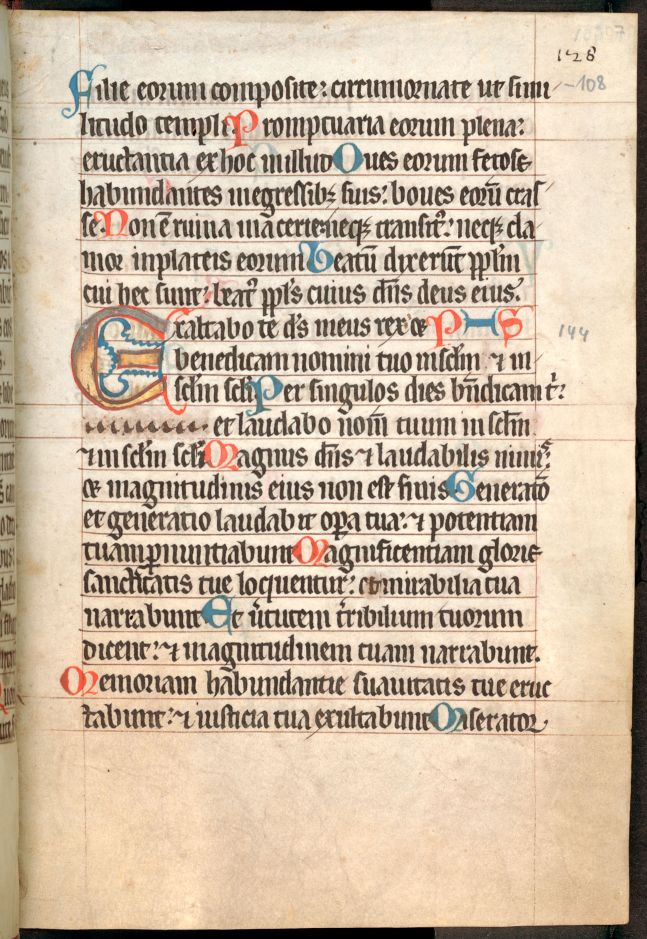 128
-108
Filie eorum composite: circumornate ut simi
litudo templi. Promptuaria eorum plena:
eructantia ex hoc in illud Oues eorum fetose
habundantes in egressibꝫ suis: boues eorū cras
se. Non ē ruina macerie: neqꝫ transitꝰ: neqꝫ cla
mor in plateis eorum Beatū dixerūt ppl̄m
cui hec sunt: beatꝰ ppl̄s cuius dn̄s deus eius.
Exaltabo te ds̄ meus rex ⁊ PS
144
benedicam nomini tuo in scl̄m ⁊ in
scl̄m scl̄i Per singulos dies bn̄dicam t̄:
et laudabo nom̄ tuum in scl̄m
⁊ in scl̄m scl̄i Magnus dn̄s ⁊ laudabilis nimis:
et magnitudinis eius non est finis Generatō
et generatio laudabit opa tua: ⁊ potentiam
tuam ꝓnuntiabunt Magnificentiam glorie
sanctitatis tue loquentur: et mirabilia tua
narrabunt Et v̄tutem t̄ribilium tuorum
dicent: ⁊ magnitudinem tuam narrabunt.
Memoriam habundantie suauitatis tue eruc
tabunt: ⁊ iusticia tua exultabunt Miserator